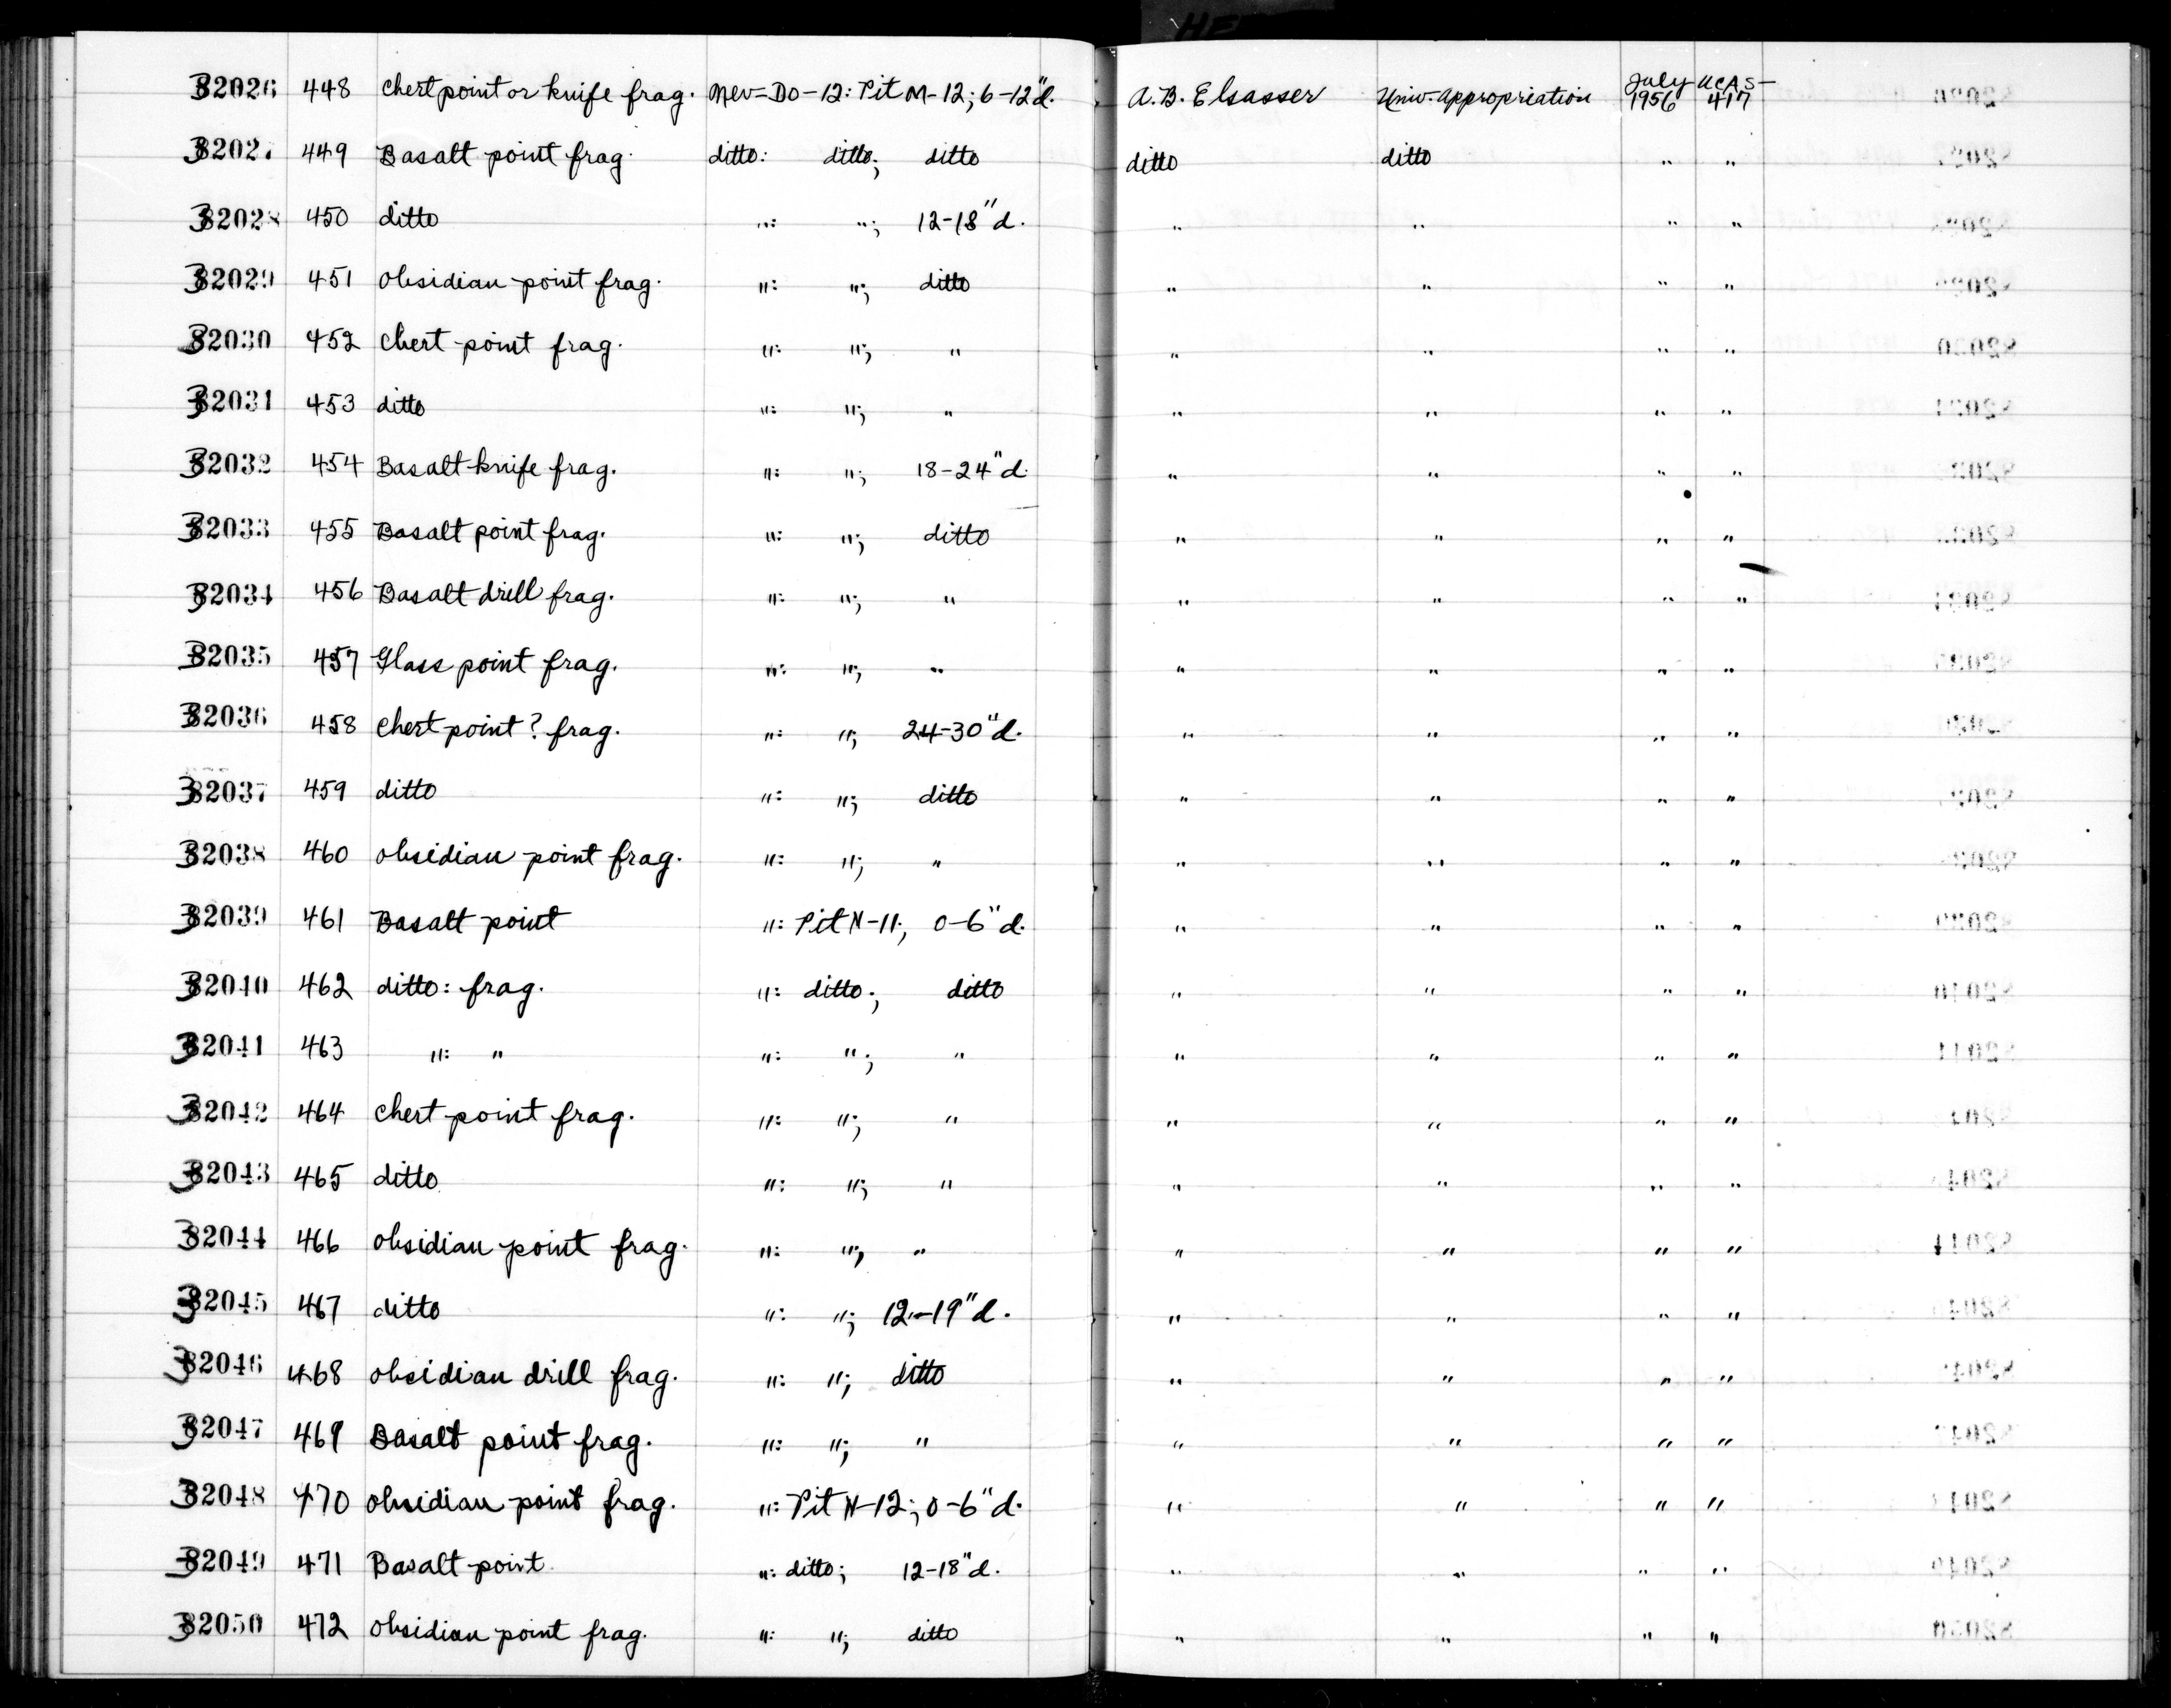 HE
32026 448 chert point or knife frag. Nev-Do-12: Pit M-12; 6-12"d. A.B. Elsasser Univ. Appropriation July 1956 UCAS-417
32027 449 Basalt point frag. ditto: ditto; ditto ditto ditto " "
32028 450 ditto ": "; 12-18"d. " " " "
32029 451 obsidian point frag. ": "; ditto " " " "
32030 452 chert point frag. ": "; " " " " "
32031 453 ditto ": "; " " " " "
32032 454 Basalt knife frag. ": "; 18-24"d. " " " "
32033 455 Basalt point frag. ": "; ditto " " " "
32034 456 Basalt drill frag. ": "; " " " " "
32035 457 Glass point frag. ": "; " " " " "
32036 458 chert point? frag. ": "; 24-30"d. " " " "
32037 459 ditto ": "; ditto " " " "
32038 460 obsidian point frag. ": "; " " " " "
32039 461 Basalt point ": Pit N-11; 0-6"d. " " " "
32040 462 ditto: frag. ": ditto; ditto " " " "
32041 463 ": " ": "; " " " " "
32042 464 chert point frag. ": "; " " " " "
32043 465 ditto ": "; " " " " "
32044 466 obsidian point frag. ": "; " " " " "
32045 467 ditto ": "; 12-19"d. " " " "
32046 468 obsidian drill frag. ": "; ditto " " " "
32047 469 Basalt point frag. ": "; " " " " "
32048 470 obsidian point frag. ": Pit N-12; 0-6"d. " " " "
32049 471 Basalt point ": ditto; 12-18"d. " " " "
32050 472 obsidian point frag. ": "; ditto " " " "